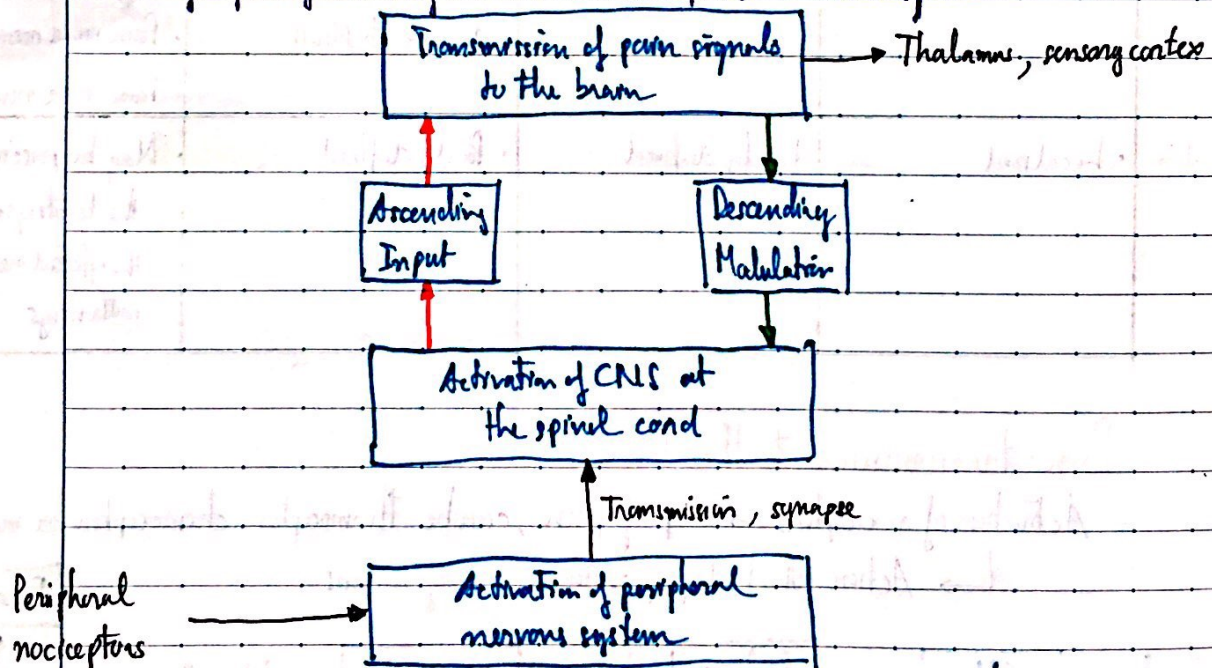 Transmission of pain signals
to the brain
Thalamus, sensory cortex
Ascending
Input
Descending
Modulation
Activation of CNS at
the spinal cord
Transmission, synapse
Peripheral
nociceptors
Activation of peripheral
nervous system